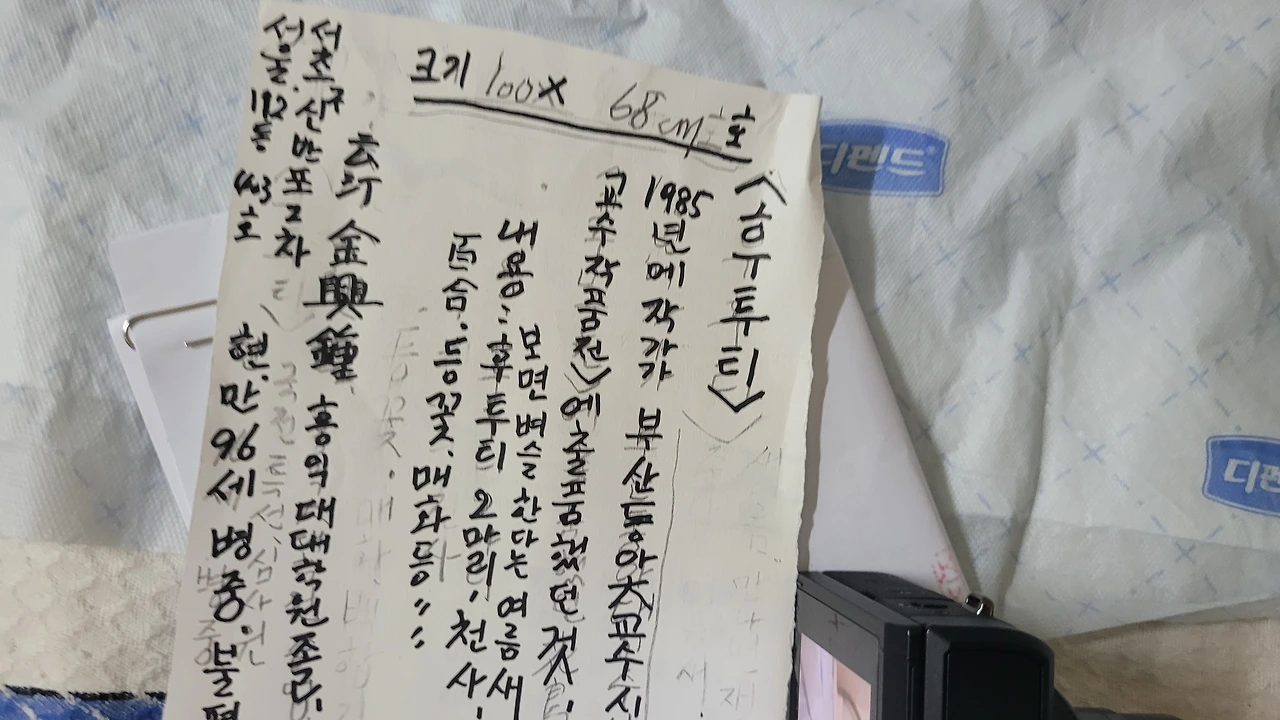 크기 100 X 68cm 호
<슈투티>
1985년에 작가가 부산동아大교수시
교수작품전>에 출품했던 것.
내용: 보면 벼슬한다는 여름새
후투티 2마리, 천사.
百合. 등꽃. 매화등
金興鐘 홍익대대학원졸.
서초구 신반포2차
서울. 112동 호
현. 만. 96세 병중. 불편
디펜드
디펜